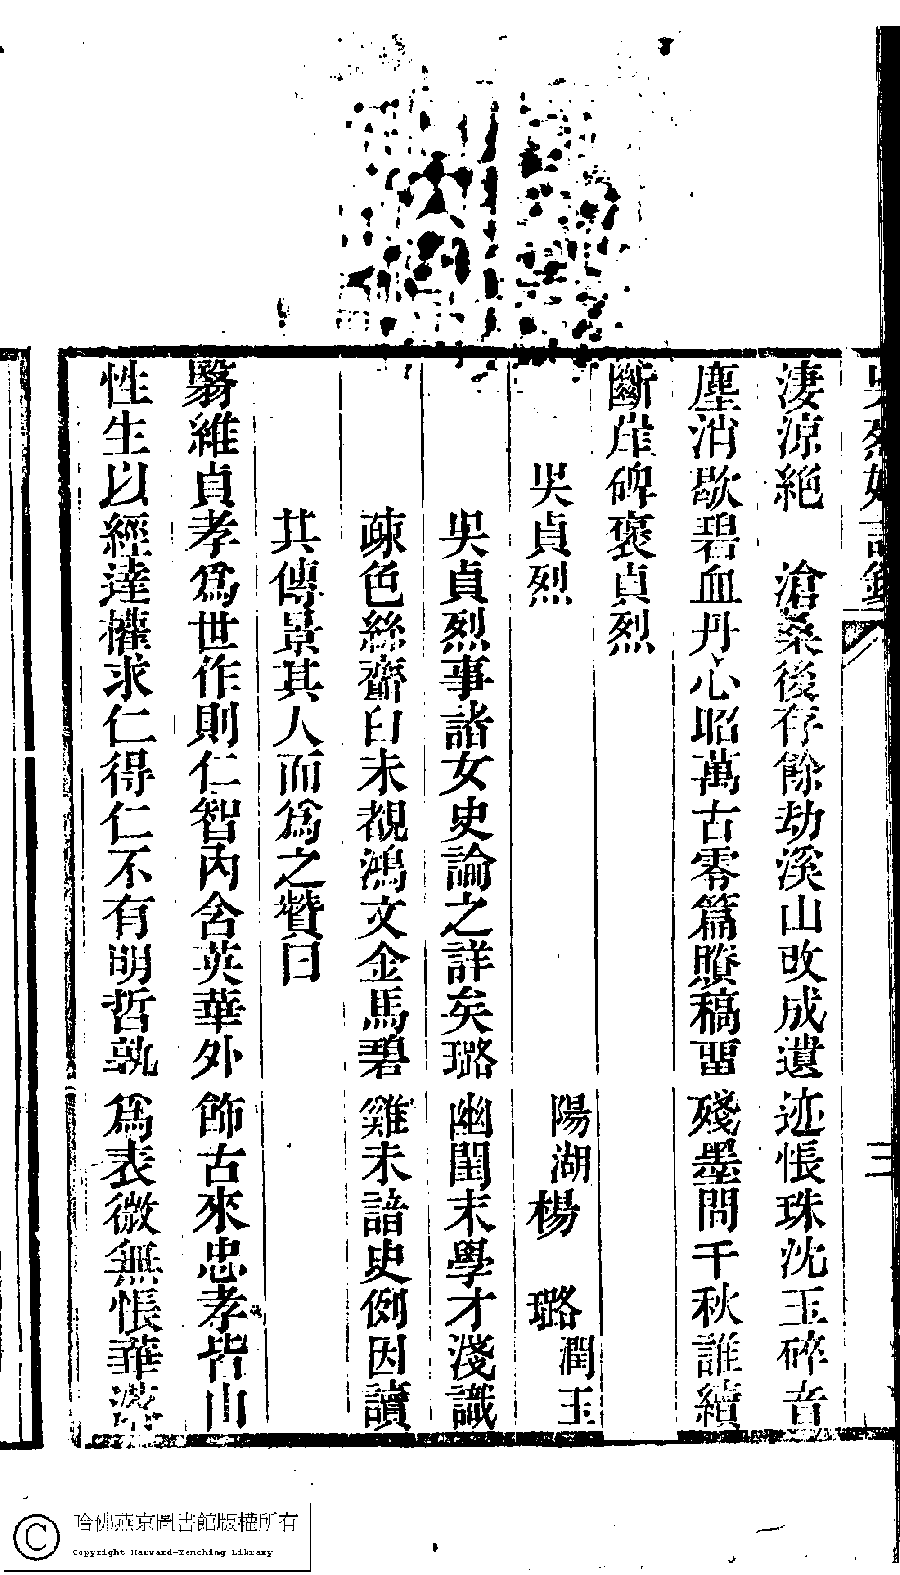 吳烈婦詩鈔
三
淒涼絶　滄桑後存餘劫溪山改成遺迹悵珠沈玉碎音
塵消歇碧血丹心昭萬古零篇賸稿畱殘墨問千秋誰續
斷崖碑褒貞烈
吳貞烈　陽湖楊　璐潤玉
吳貞烈事諸女史論之詳矣璐幽閨末學才淺識
疎色絲虀臼未覩鴻文金馬碧雞未諳史例因讀
其傳景其人而爲之贊曰
繄維貞孝爲世作則仁智丙含英華外飾古來忠孝皆由
性生以經達權求仁得仁不有明哲孰爲表微無悵華
哈佛燕京圖書館版權所有
Copyright Harvard-Yenching Library